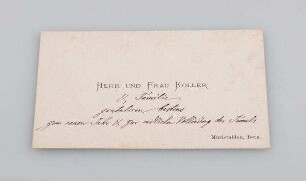 HERR UND FRAU KOLLER
& Familie
gratuliren bestens
zum neuen Jahr & zur Vollendung des
Marienthal, Bern.